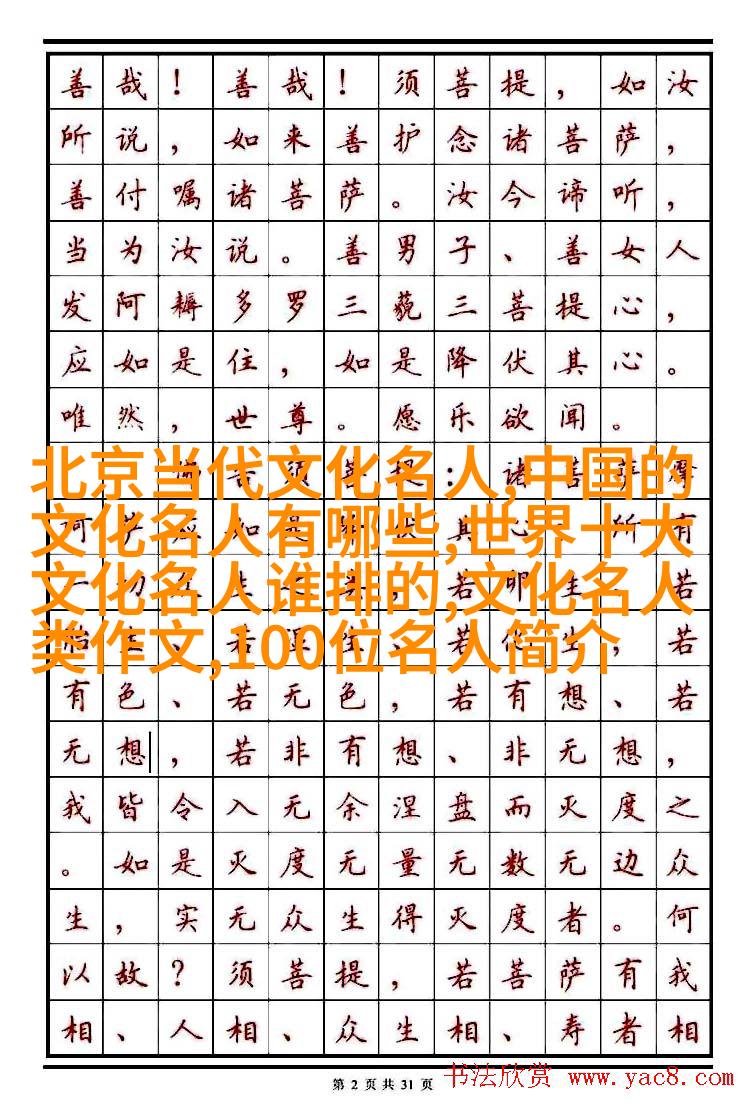 善哉！善哉！须菩提，如汝
所说，如来善护念诸菩萨，
善付嘱诸菩萨。汝今谛听，
当为汝说。善男子、善女人
发阿耨多罗三藐三菩提心，
应如是住，如是降伏其心。
唯然，世尊。愿乐欲闻。
佛告须菩提：诸菩萨摩
北京当代文化名人,中国的
应如是降伏其心。所有
文化名人有哪些,世界十大
一切众生之类，若卵生、若
文化名人谁排的,文化名人
胎生、若湿生、若化生，若
类作文,100位名人简介
有色、若无色，若有想、若
无想，若非有想、非无想，
我皆令入无余涅盘而灭度之
。如是灭度无量无数无边众
生，实无众生得灭度者。何
以故？须菩提，若菩萨有我
相、人相、众生相、寿者相
第 2 页 共 31 页
书法欣赏 www.yac8.com